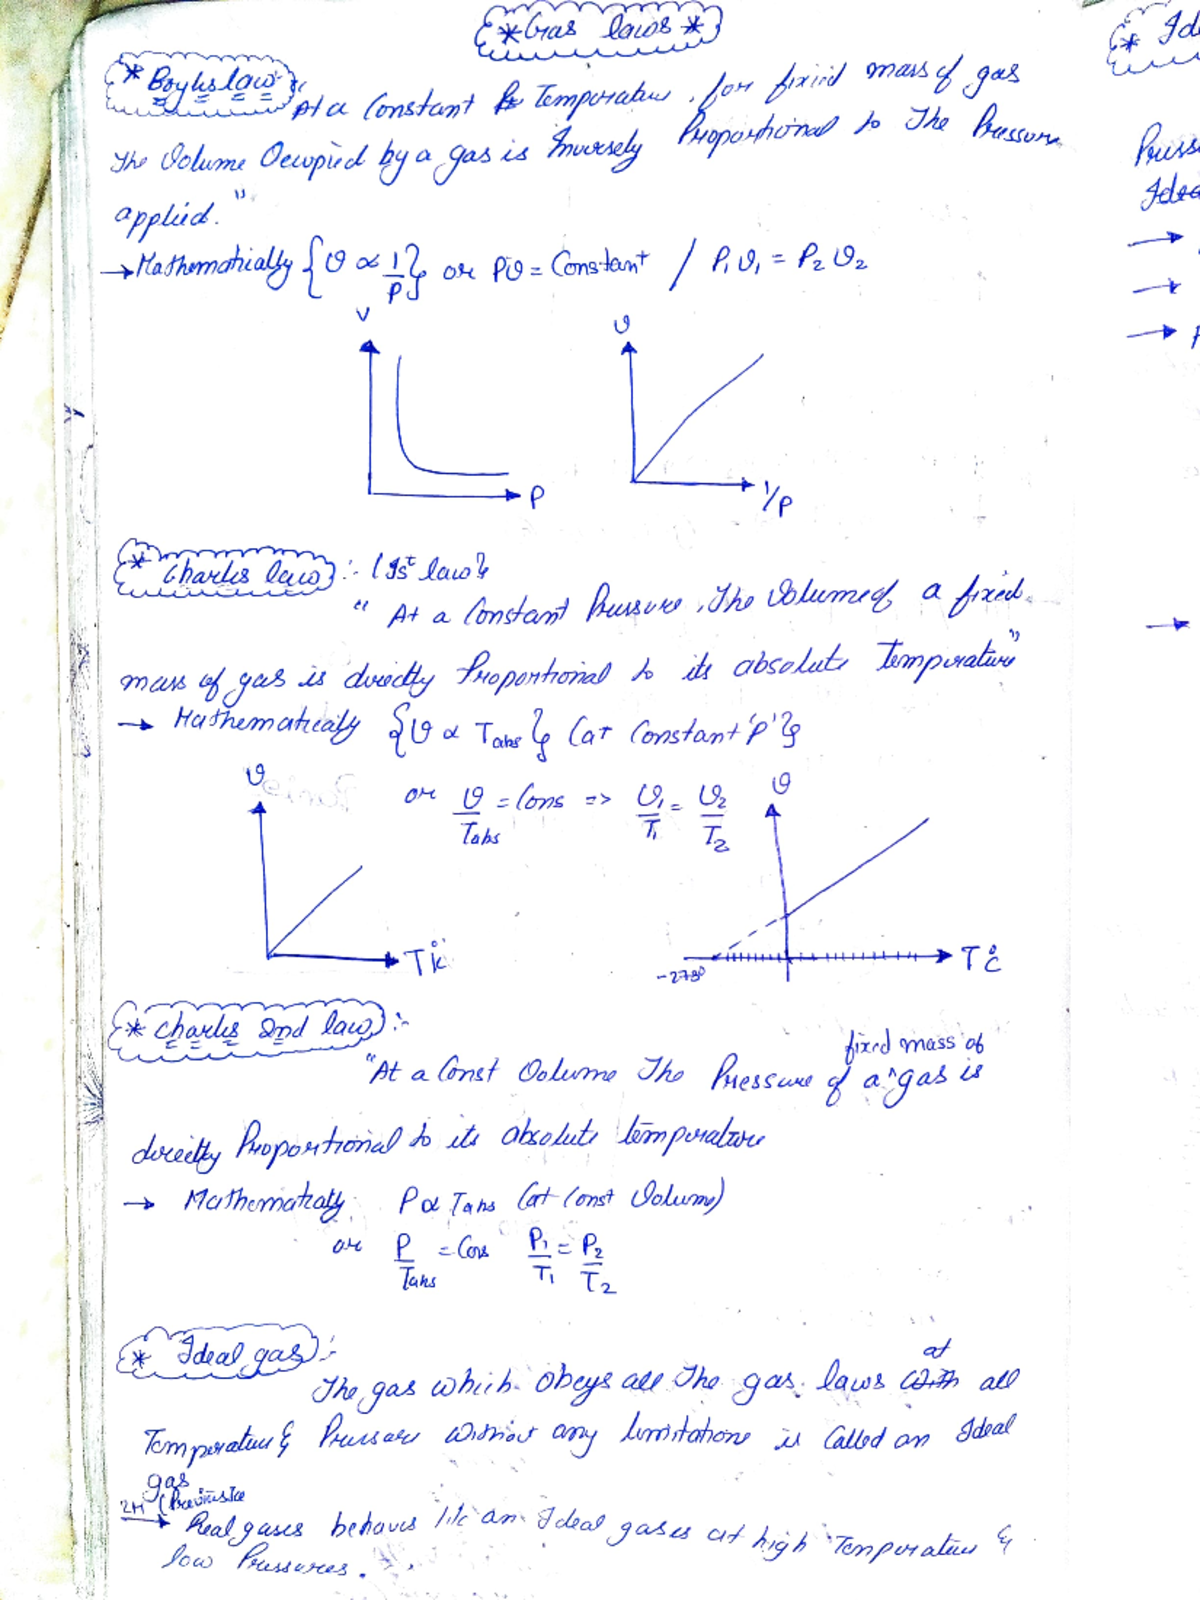 * Gas laws *
* Boyles law :
At a Constant Temperature, for fixied mass of gas
The Volume Occupied by a gas is Inversely Proportional to The Pressure
applied."
→ Mathematically { V ∝ 1/P } or PV = Constant / P₁V₁ = P₂V₂
V
P
V
1/P
* Charles law :- (Ist law}
" At a Constant Pressure, The Volume of a fixed
mass of gas is directly Proportional to its absolute Temperature"
→ Mathematically { V ∝ Tabs } (at Constant 'P'}
or V/Tabs = Cons => V₁/T₁ = V₂/T₂
V
T °k
V
-273°
T °C
* Charles 2nd law :-
"At a Const Volume The Pressure of a fixed mass of gas is
directly Proportional to its absolute temperature
→ Mathematically P ∝ Tabs (at Const Volume)
or P/Tabs = Cons P₁/T₁ = P₂/T₂
* Ideal gas :-
The gas which obeys all The gas laws at all
Temperature & Pressure without any limitations is Called an Ideal
gas
2M
→ Real gases behaves like an Ideal gases at high Temperature &
low Pressures.
* Id
Press
Idea
→
→
→
→